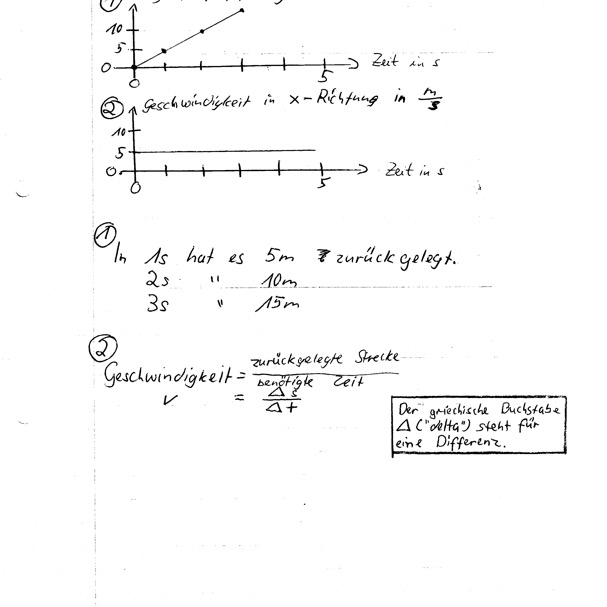 ①
10
5
0
0
5
Zeit in s
② Geschwindigkeit in x-Richtung in m/s
10
5
0
0
5
Zeit in s
①
In 1s hat es 5m zurückgelegt.
2s " 10m
3s " 15m
②
Geschwindigkeit = zurückgelegte Strecke / benötigte Zeit
v = Δs / Δt
Der griechische Buchstabe
Δ ("delta") steht für
eine Differenz.